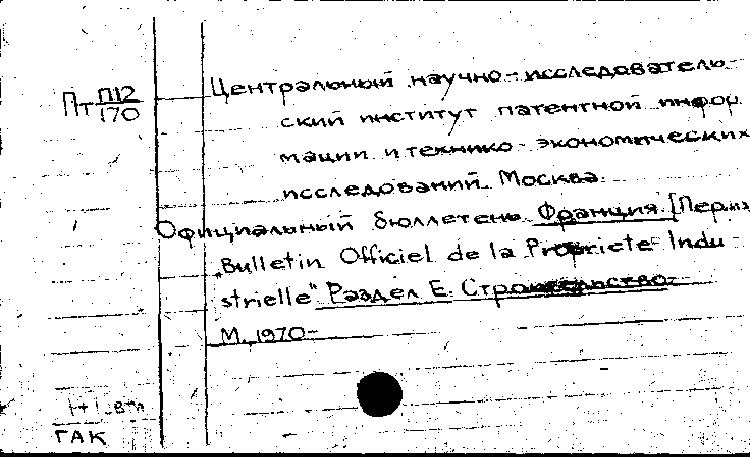 Пт П12/170
Центральный научно-исследователь-
ский институт патентной инфор
мации и технико-экономических
исследований. Москва.
Официальный бюллетень. Франция. [Пер. из
„Bulletin Officiel de la Propriete Indu-
strielle" Раздел Е. Строительство-
М., 1970-
ГАК